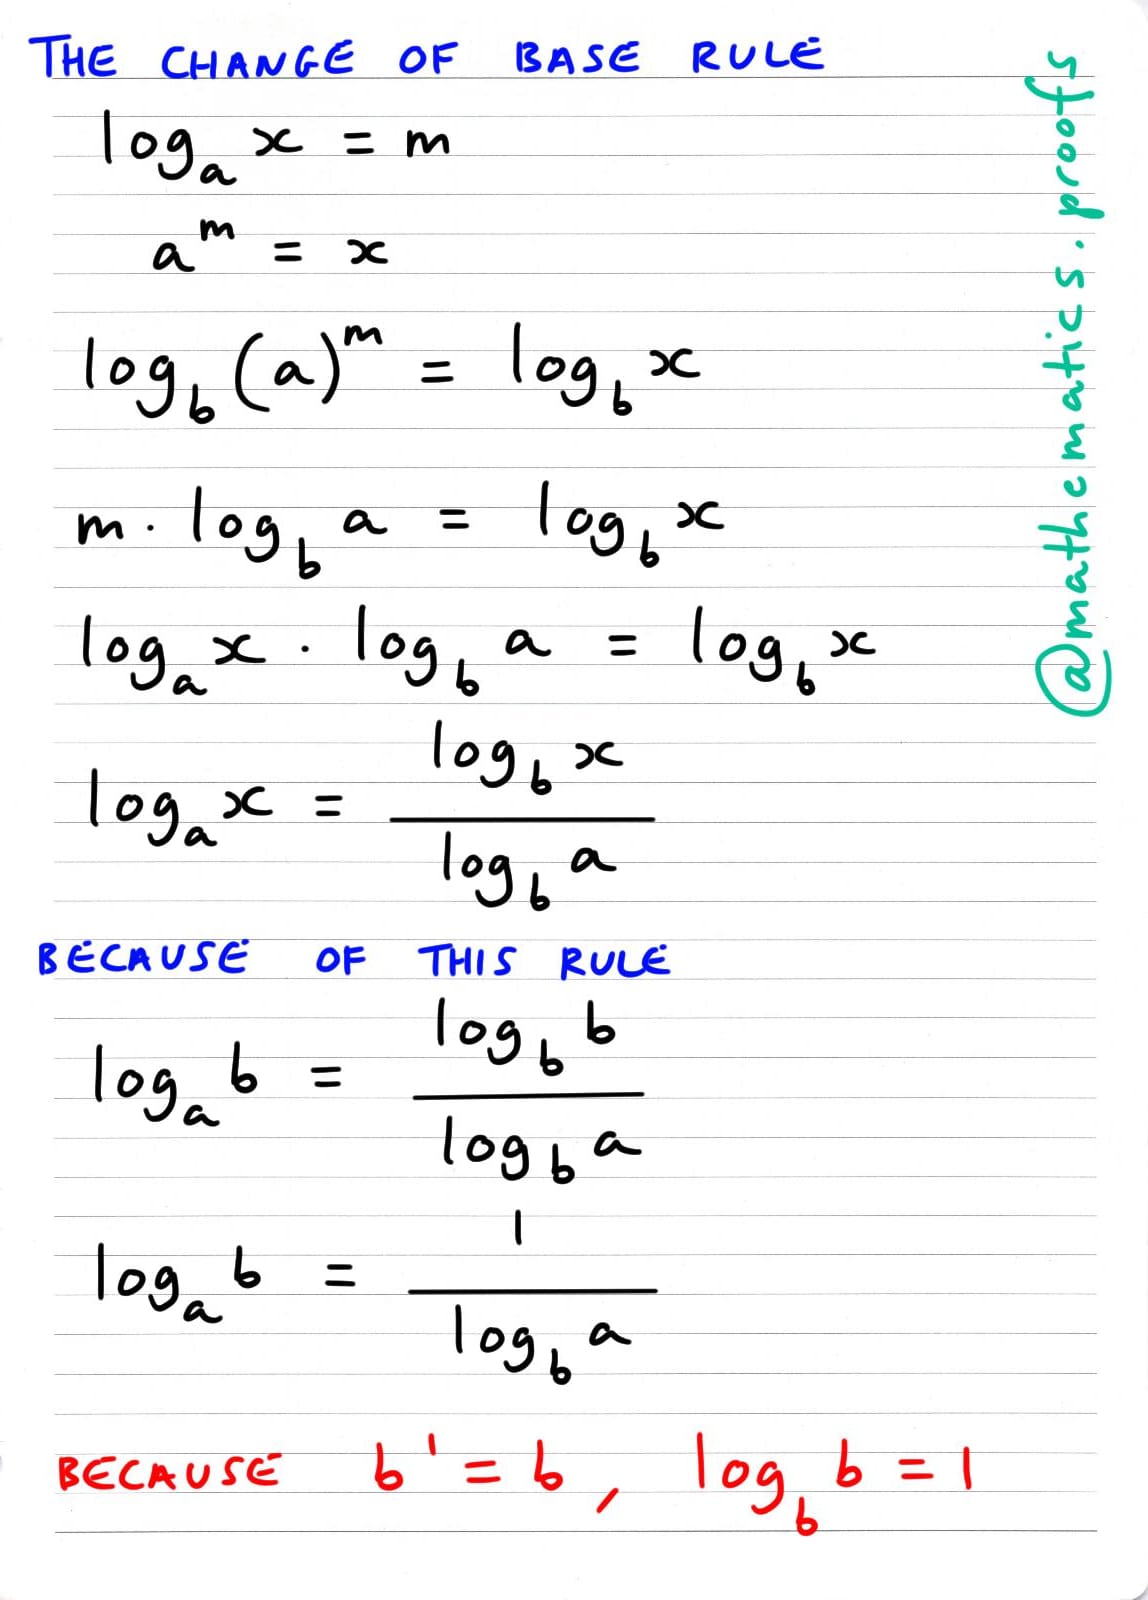 THE CHANGE OF BASE RULE
logₐ x = m
aᵐ = x
log_b (a)ᵐ = log_b x
m · log_b a = log_b x
logₐ x · log_b a = log_b x
logₐ x = log_b x / log_b a
BECAUSE OF THIS RULE
logₐ b = log_b b / log_b a
logₐ b = 1 / log_b a
BECAUSE b¹ = b, log_b b = 1
@mathematics.proofs